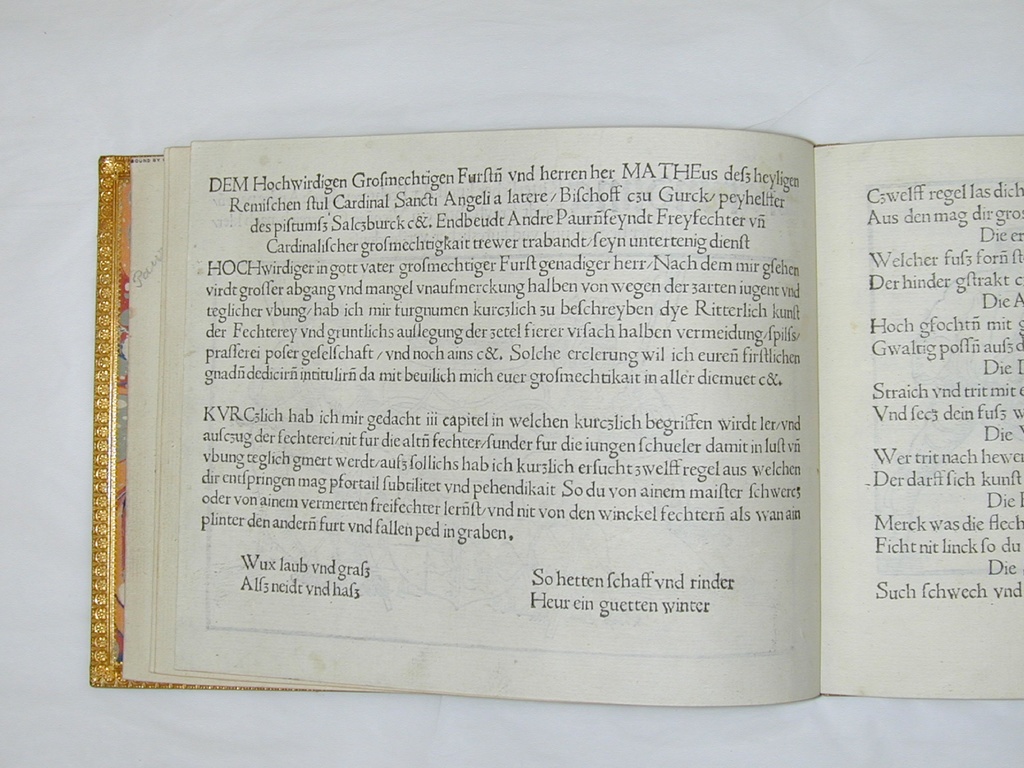 BOUND BY
Paur
DEM Hochwirdigen Groſmechtigen Furſtñ vnd herren her MATHEus deſз heyligen
Remiſchen ſtul Cardinal Sancti Angeli a latere / Biſchoff cзu Gurck / peyhelffer
des piſtumſз Salcзburck c&. Endbeudt Andre Paurñfeyndt Freyfechter vñ
Cardinaliſcher groſmechtigkait trewer trabandt / ſeyn untertenig dienſt
HOCHwirdiger in gott vater groſmechtiger Furſt genadiger herr / Nach dem mir gſehen
virdt groſſer abgang vnd mangel vnaufmerckung halben von wegen der зarten iugent vnd
teglicher vbung / hab ich mir furgnumen kurcзlich зu beſchreyben dye Ritterlich kunſt
der Fechterey vnd gruntlichs auſlegung der зetel fierer vrſach halben vermeidung / ſpilſs /
praſſerei poſer geſelſchaft / vnd noch ains c&. Solche erclerung wil ich eureñ firſtlichen
gnadñ dedicirñ intitulirñ da mit beuilich mich euer groſmechtikait in aller diemuet c&.
KVRCзlich hab ich mir gedacht iii capitel in welchen kurcзlich begriffen wirdt ler / vnd
auſcзug der fechterei / nit fur die altñ fechter / ſunder fur die iungen ſchueler damit in luſt vñ
vbung teglich gmert werdt / auſз ſollichs hab ich kurзlich erſucht зwelff regel aus welchen
dir entſpringen mag pfortail ſubtilitet vnd pehendikait So du von ainem maiſter ſchwertз
oder von ainem vermerten freifechter lernſt / vnd nit von den winckel fechterñ als wan ain
plinter den anderñ furt vnd fallen ped in graben.
Wux laub vnd graſз
Alſз neidt vnd haſз
So hetten ſchaff vnd rinder
Heur ein guetten winter
Cзwelff regel las dich
Aus den mag dir gros
Die er
Welcher fuſз forñ ſt
Der hinder gſtrakt c
Die A
Hoch gfochtñ mit g
Gwaltig poſſñ auſз d
Die
Straich vnd trit mit e
Vnd ſecз dein fuſз w
Die
Wer trit nach hewe
Der darff ſich kunſt
Die
Merck was die flech
Ficht nit linck ſo du
Die
Such ſchwech vnd